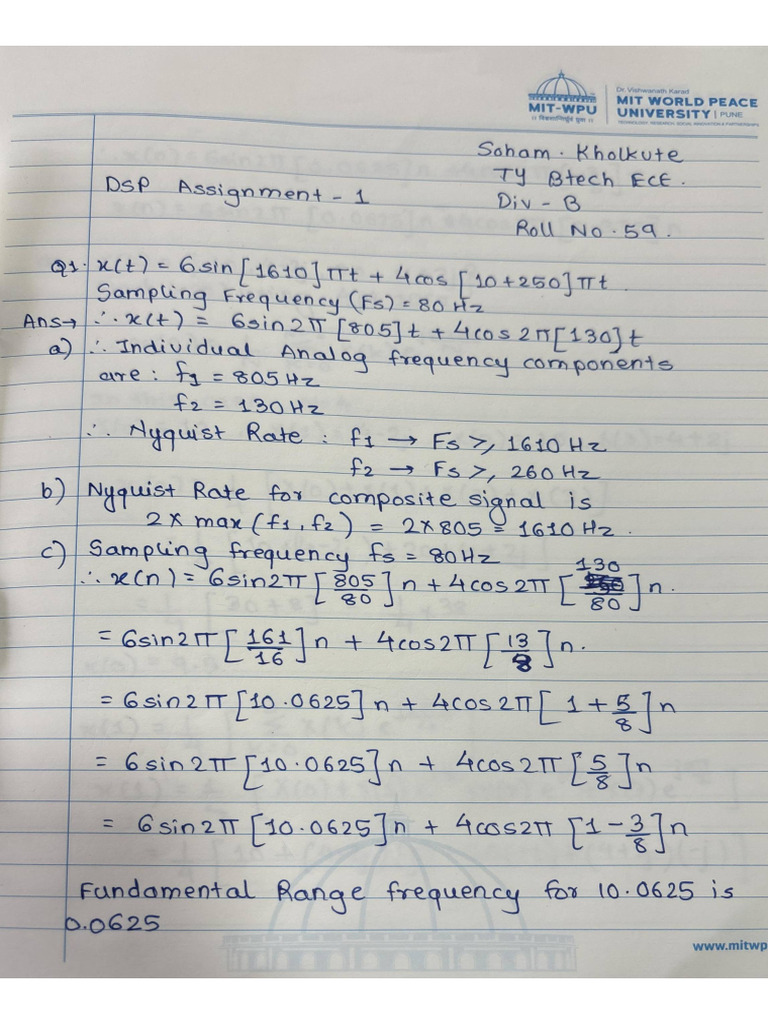 Dr. Vishwanath Karad
MIT-WPU
MIT WORLD PEACE
UNIVERSITY | PUNE
TECHNOLOGY, RESEARCH, SOCIAL INNOVATION & PARTNERSHIPS
॥ विश्वशान्तिर्ध्रुवं ध्रुवा ॥
Soham. Kholkute
TY Btech ECE.
DSP Assignment - 1
Div - B
Roll No. 59.
Q1. x(t) = 6sin[1610]πt + 4cos[10+250]πt.
Sampling Frequency (Fs) = 80 Hz
Ans→ ∴ x(t) = 6sin2π[805]t + 4cos2π[130]t
a) ∴ Individual Analog frequency components
are : f1 = 805 Hz
f2 = 130 Hz
∴ Nyquist Rate : f1 → Fs ≥, 1610 Hz
f2 → Fs ≥, 260 Hz
b) Nyquist Rate for composite signal is
2 x max(f1, f2) = 2x805 = 1610 Hz.
c) Sampling frequency fs = 80Hz
∴ x(n) = 6sin2π[805/80]n + 4cos2π[130/80]n.
= 6sin2π[161/16]n + 4cos2π[13/8]n.
= 6sin2π[10.0625]n + 4cos2π[1+5/8]n
= 6sin2π[10.0625]n + 4cos2π[5/8]n
= 6sin2π[10.0625]n + 4cos2π[1-3/8]n
Fundamental Range frequency for 10.0625 is
0.0625
www.mitwp